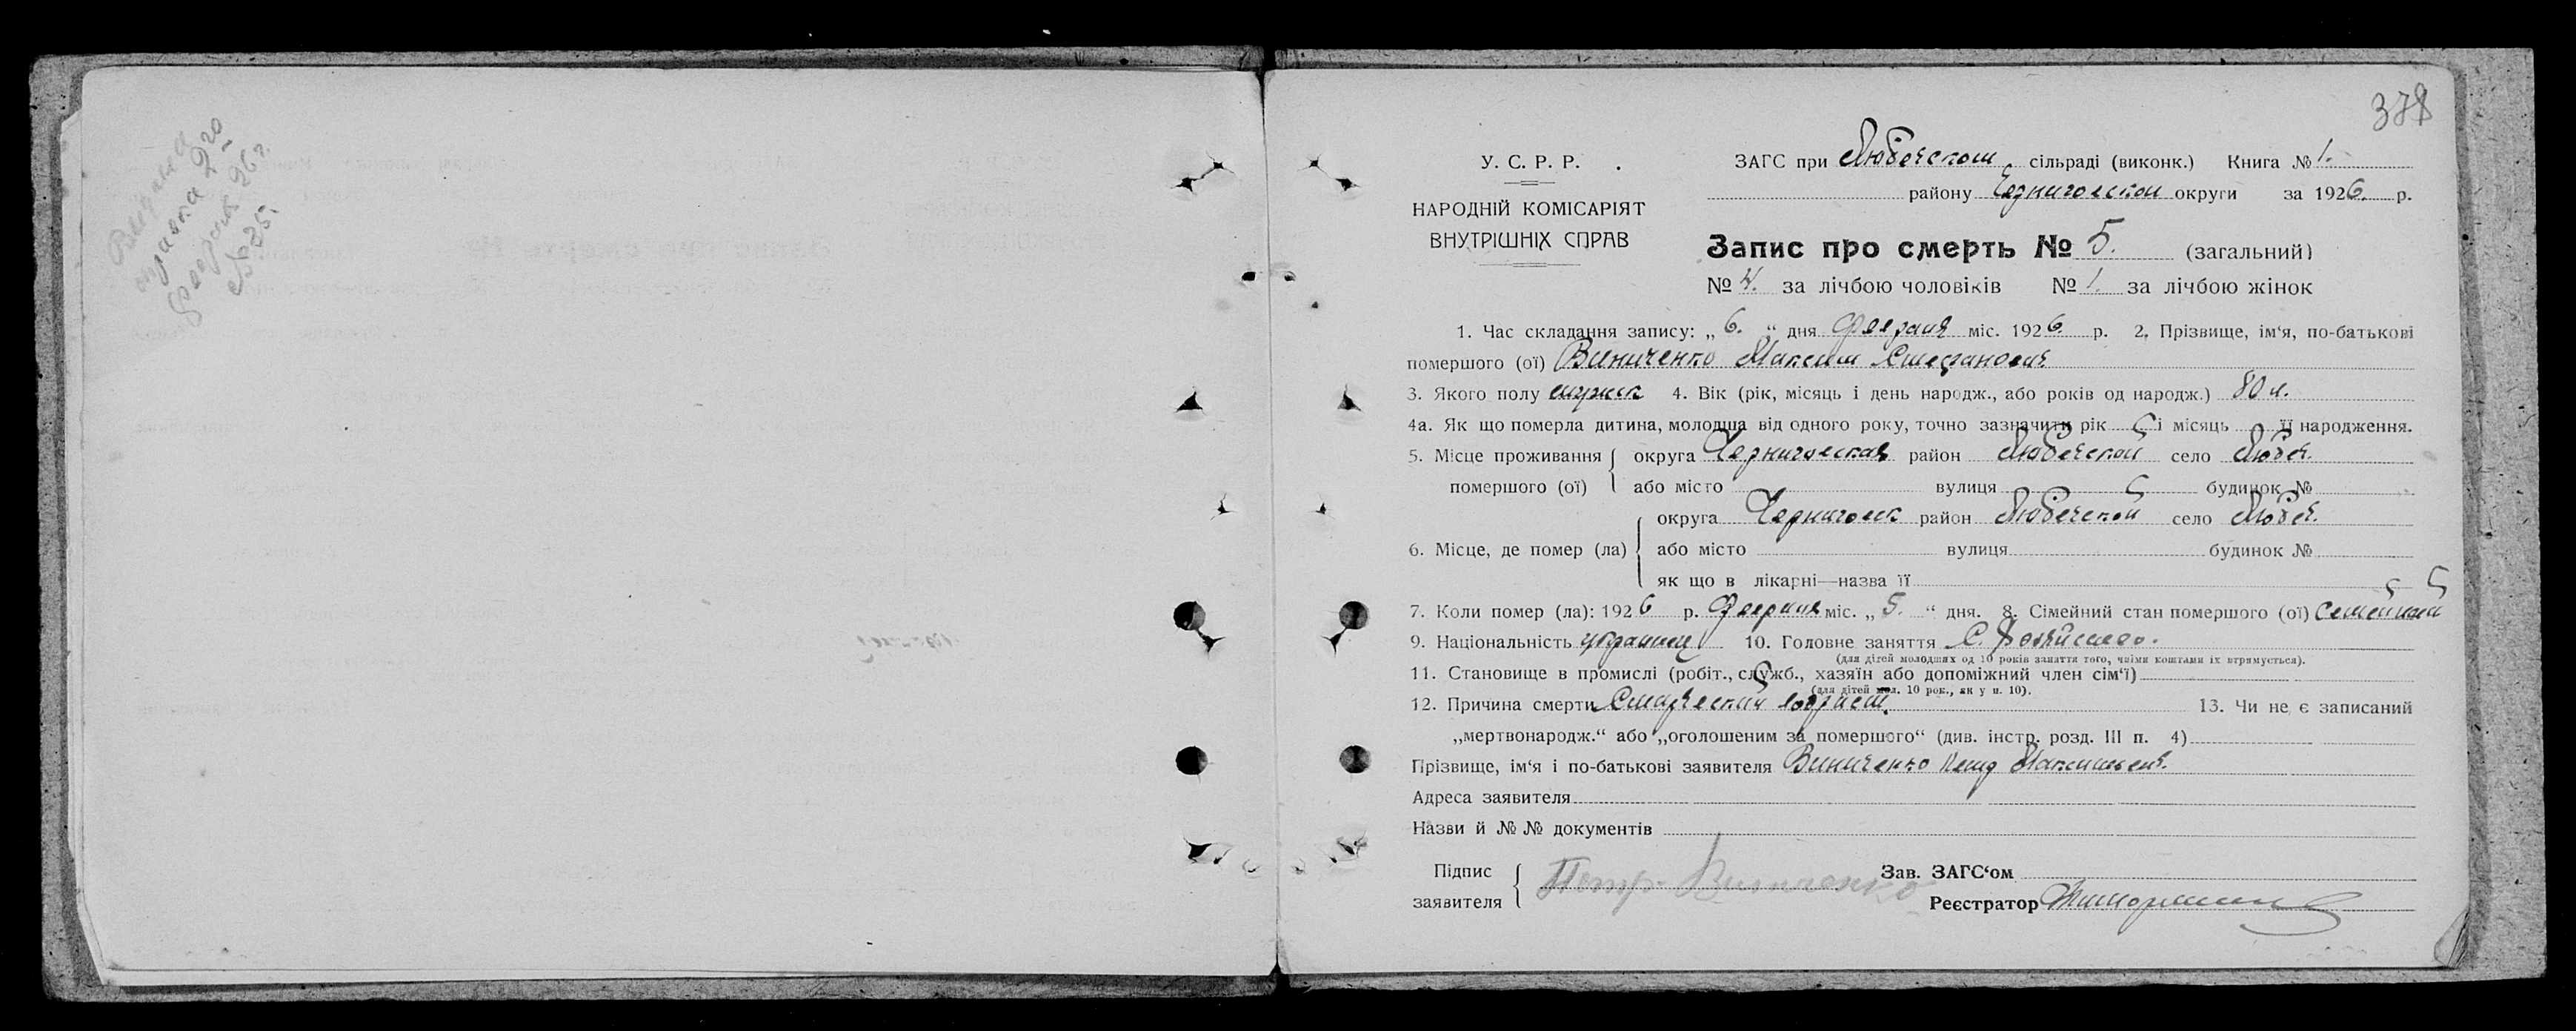 Выдана
справка 2го
февраля 26 г.
№ 35.
378
У. С. Р. Р.
НАРОДНІЙ КОМІСАРІЯТ
ВНУТРІШНІХ СПРАВ
ЗАГС при Любечском сільраді (виконк.) Книга № 1.
району Черниговской округи за 1926 р.
Запис про смерть № 5. (загальний)
№ 4. за лічбою чоловіків № 1. за лічбою жінок
1. Час складання запису: „ 6. “ дня февраля міс. 1926 р. 2. Прізвище, ім‘я, по-батькові
помершого (ої) Виниченко Максим Стефанович
3. Якого полу мужск 4. Вік (рік, місяць і день народж., або років од народж.) 80 л.
4а. Як що померла дитина, молодша від одного року, точно зазначити рік і місяць її народження.
5. Місце проживання помершого (ої) округа Черниговская район Любечский село Любеч.
або місто вулиця будинок №
6. Місце, де помер (ла) округа Черниговск район Любечский село Любеч.
або місто вулиця будинок №
як що в лікарні—назва її
7. Коли помер (ла): 1926 р. февраля міс. „ 5. “ дня. 8. Сімейний стан помершого (ої) семейный
9. Національність украинец 10. Головне заняття С. Хозяйство.
(для дітей молодших од 10 років заняття того, чиїми коштами їх втримується).
11. Становище в промислі (робіт., служб., хазяїн або допоміжний член сім‘ї)
(для дітей мол. 10 рок., як у п. 10).
12. Причина смерти Старческий возраст. 13. Чи не є записаний
„мертвонародж.“ або „оголошеним за помершого“ (див. інстр. розд. III п. 4)
Прізвище, ім‘я і по-батькові заявителя Виниченко Петр Максимович.
Адреса заявителя
Назви й №№ документів
Підпис заявителя Петр Виниченко Зав. ЗАГС‘ом
Реєстратор